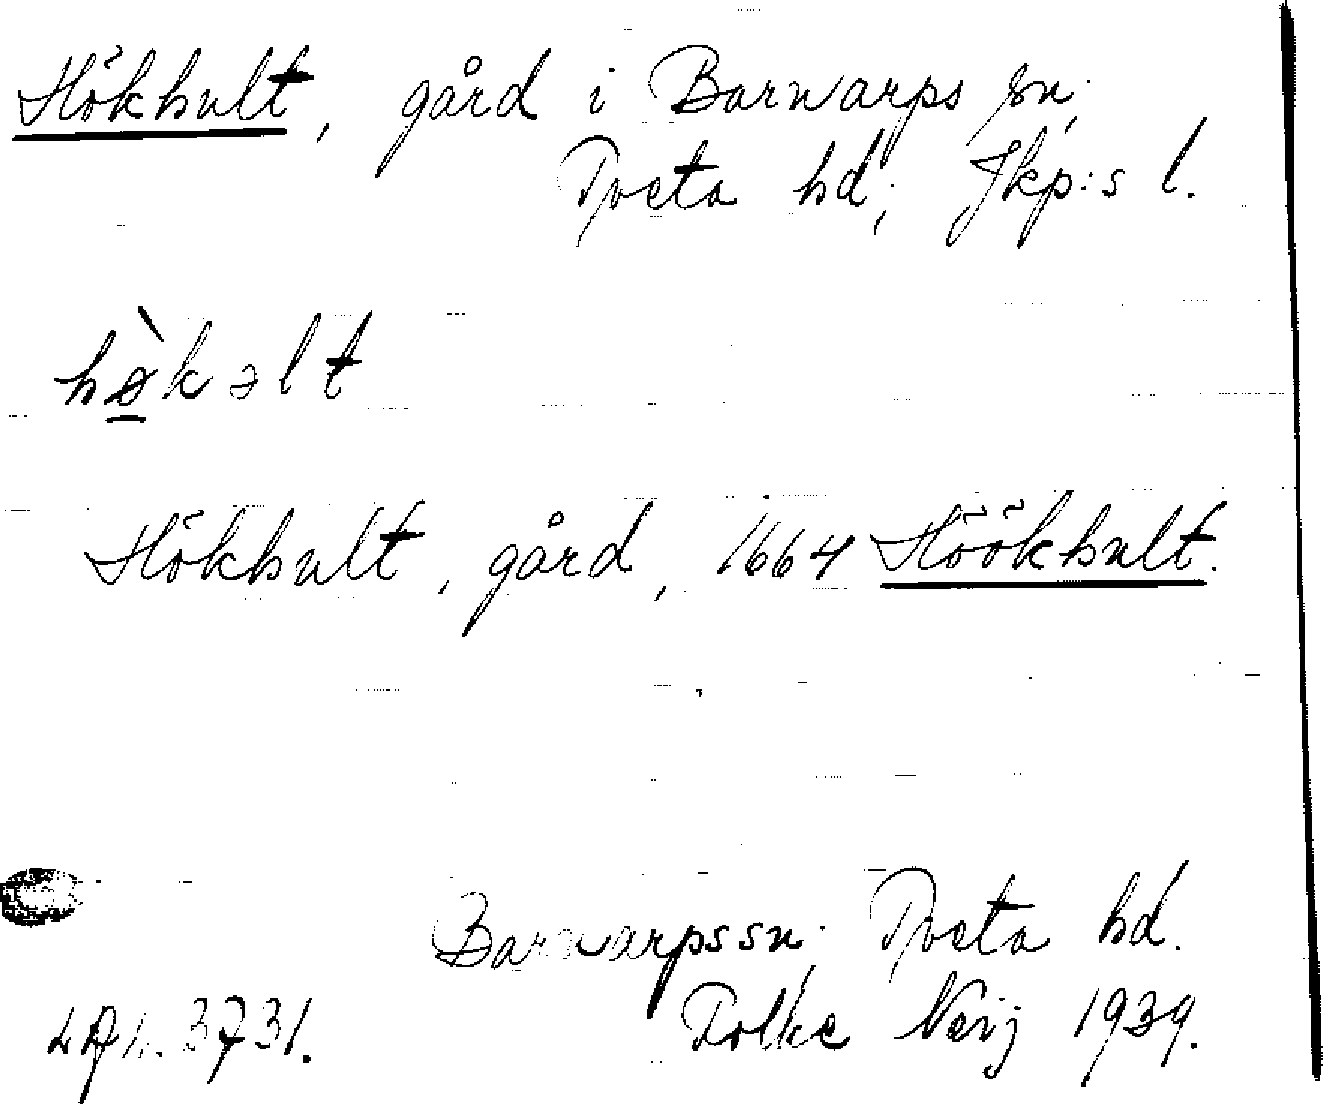 Hökhult, gård i Barnarps sn,
Tveta hd, Jkp:s l.
hø̠̀kəlt
Hökhult, gård, 1664 Höökhult.
Barnarps sn, Tveta hd.
3731. Folke Nerij 1939.